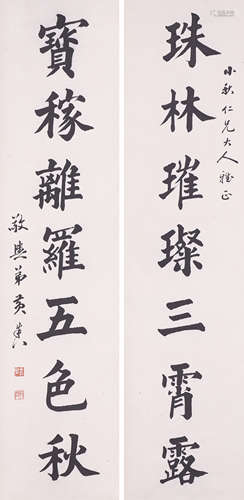 珠林璀璨三霄露
小秋仁兄大人雅正
寶稼離羅五色秋
敬典弟黃